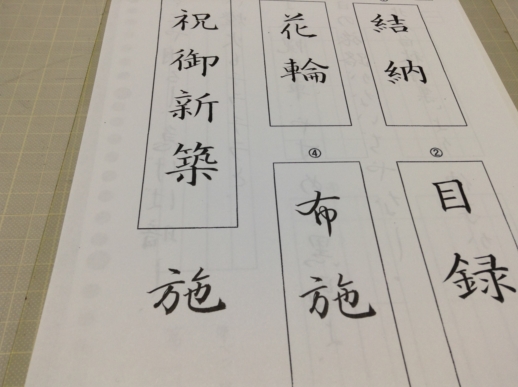 結納
②
目録
花輪
④
布施
祝御新築
施